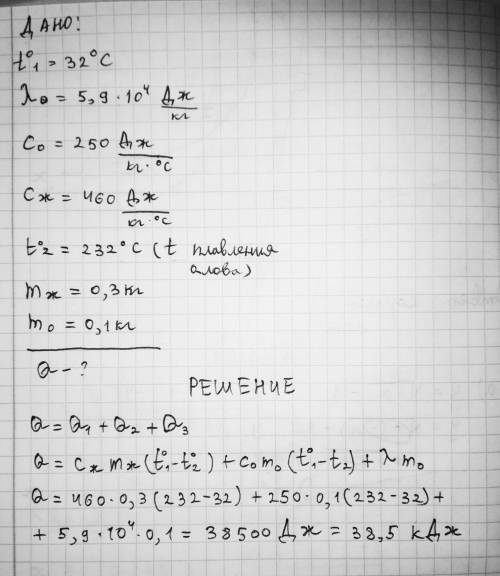 ДАНО!
t°1 = 32°C
λо = 5,9·10⁴ Дж/кг
Cо = 250 Дж/кг·°C
Cж = 460 Дж/кг·°C
t°2 = 232°C (t плавления
олова)
mж = 0,3 кг
mо = 0,1 кг
Q - ?
РЕШЕНИЕ
Q = Q1 + Q2 + Q3
Q = Cж mж (t°1 - t°2) + Cо mо (t°1 - t2) + λ mо
Q = 460·0,3(232-32) + 250·0,1(232-32) +
+ 5,9·10⁴·0,1 = 38500 Дж = 38,5 кДж